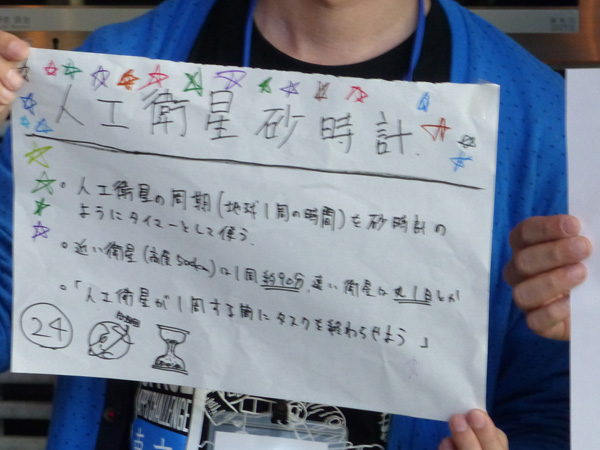 人工衛星砂時計
・人工衛星の周期(地球1周の時間)を砂時計の
ようにタイマーとして使う.
・近い衛星(高度500km)は1周約90分、遠い衛星は丸1日とか
・「人工衛星が1周する前にタスクを終わらせよう」
24
CHALLENGE